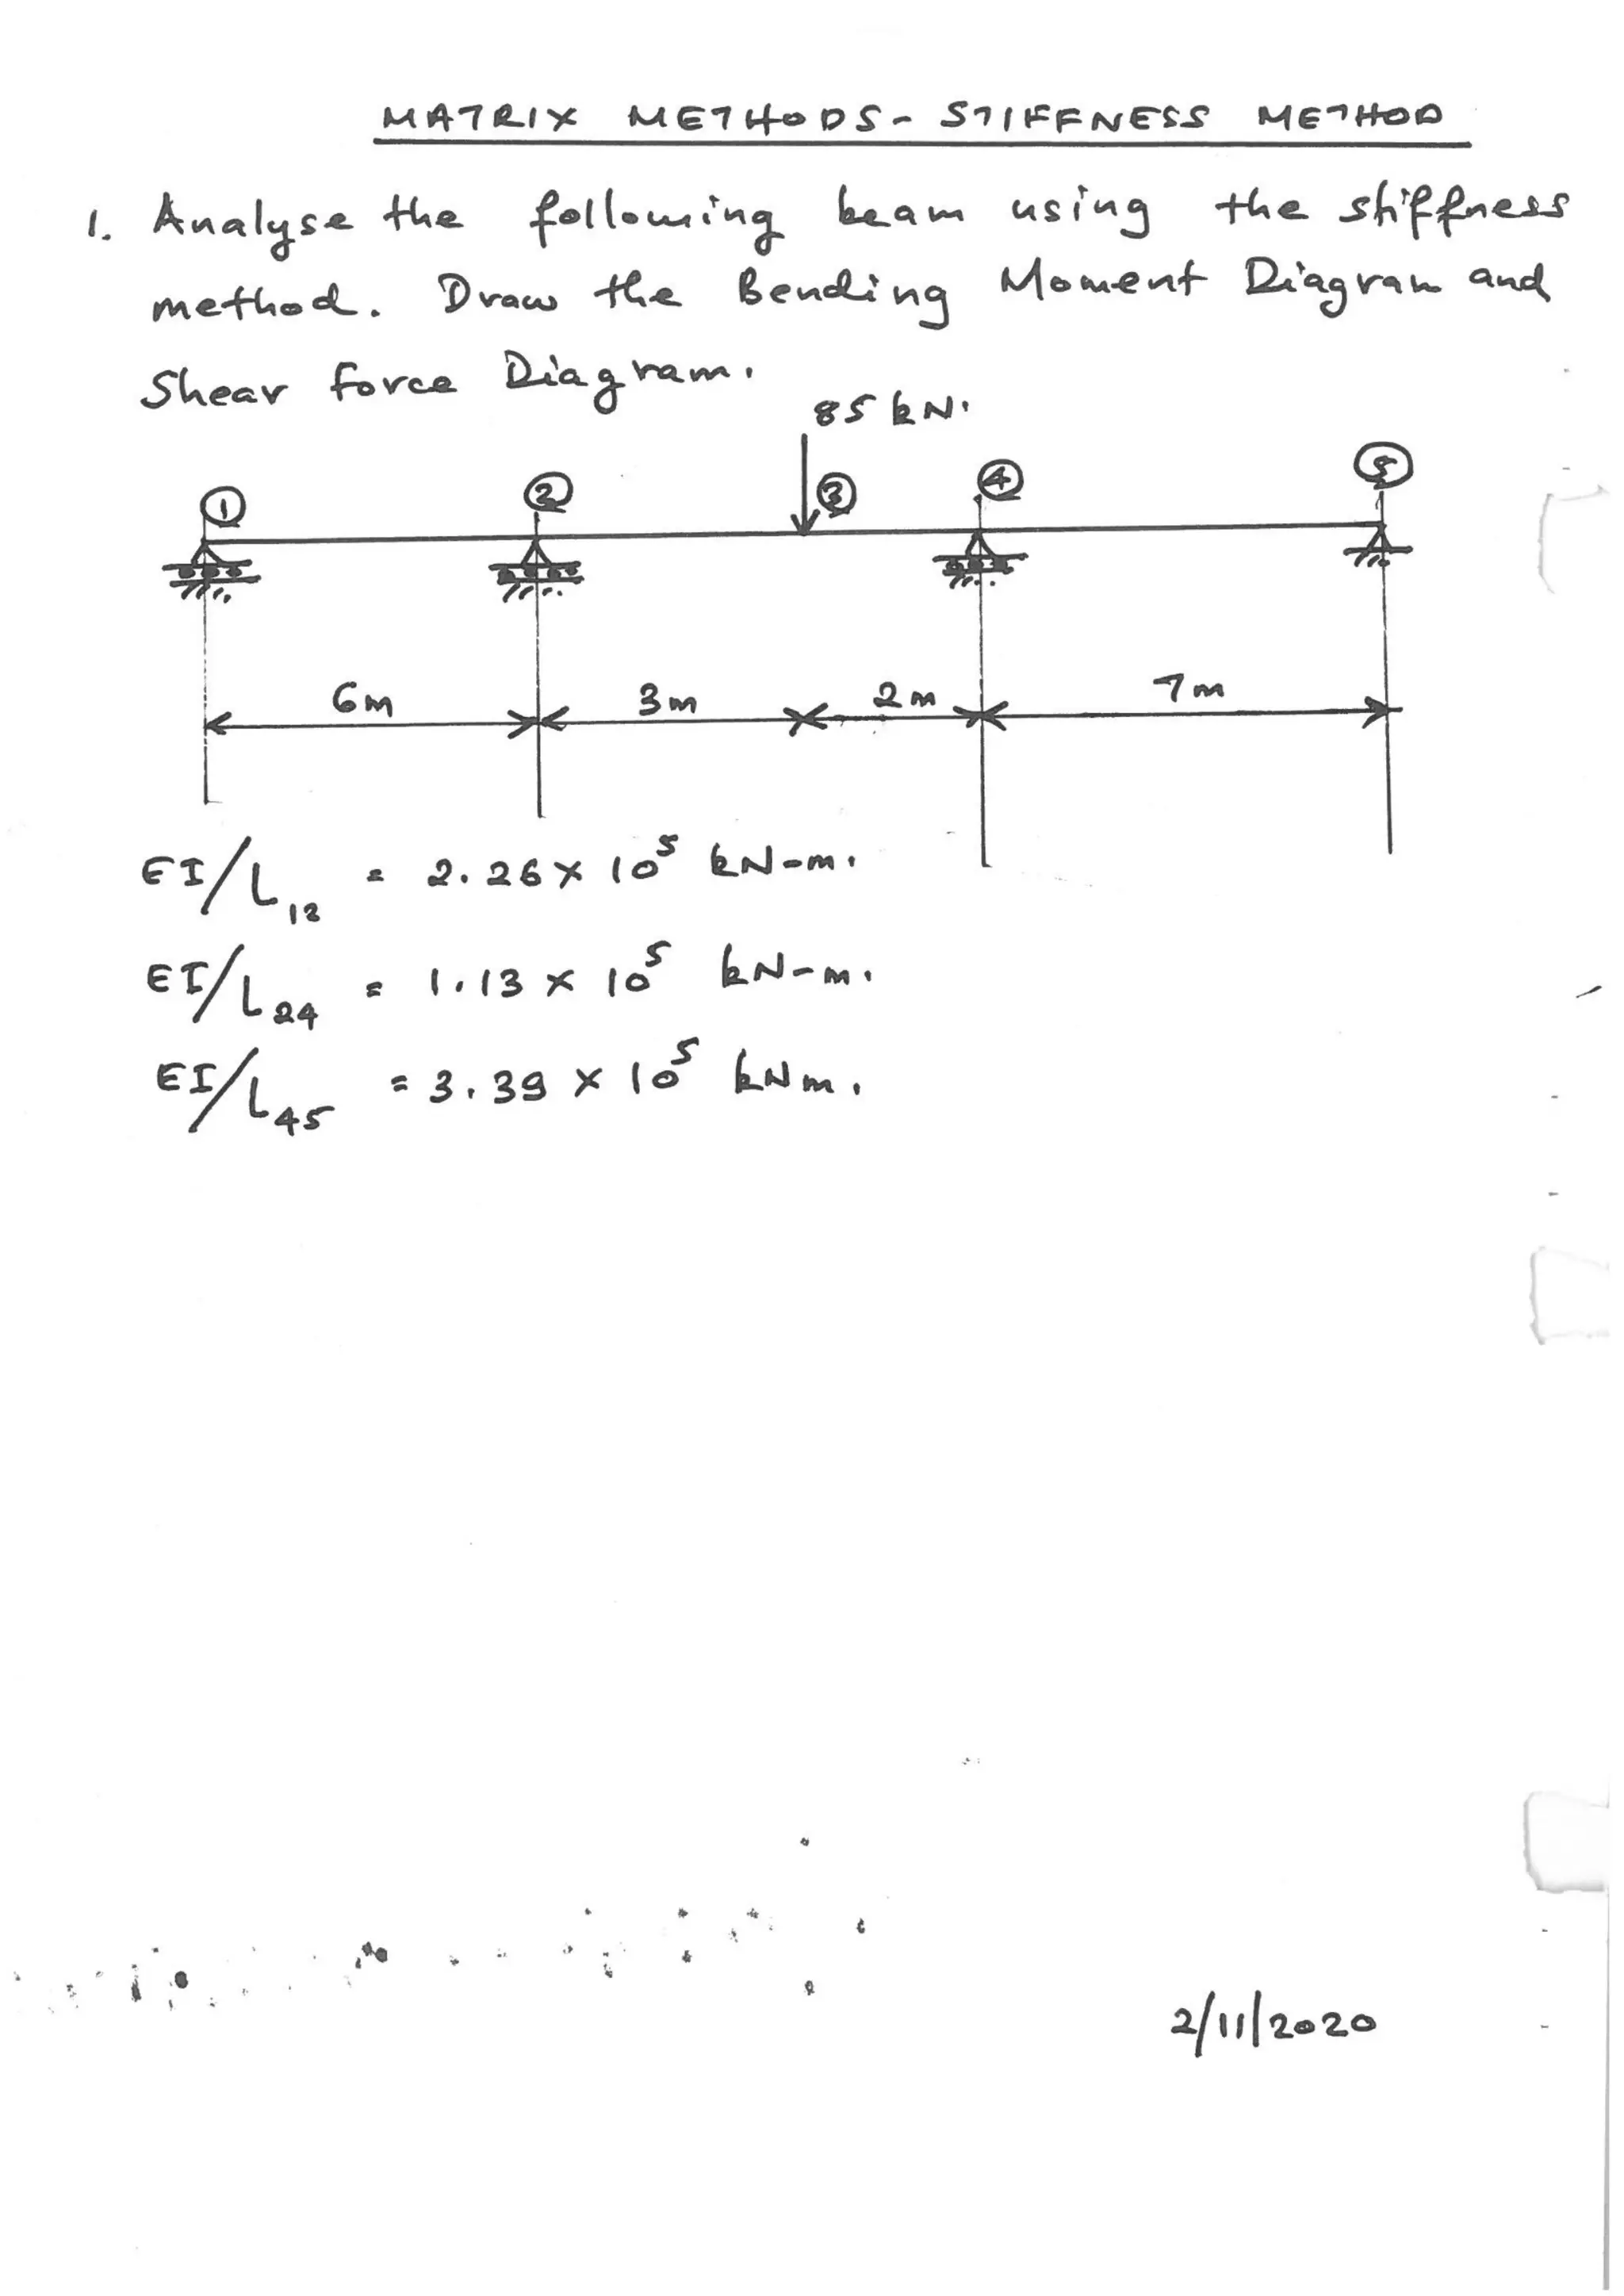 MATRIX METHODS - STIFFNESS METHOD
1. Analyse the following beam using the stiffness
method. Draw the Bending Moment Diagram and
Shear force Diagram.
85 kN.
① ② ③ ④ ⑤
6m 3m 2m 7m
EI/L12 = 2.26 x 10^5 kN-m.
EI/L24 = 1.13 x 10^5 kN-m.
EI/L45 = 3.39 x 10^5 kNm.
2/11/2020